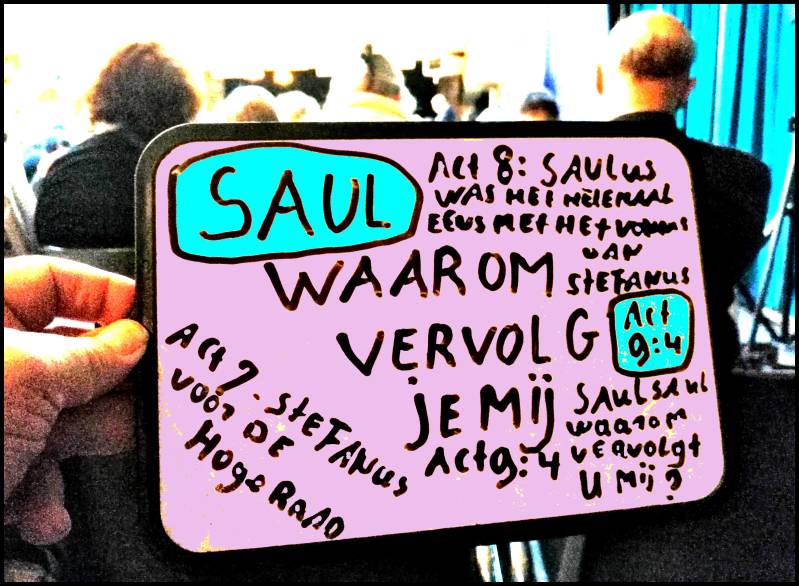 SAUL
Act 8: SAULUS
WAS HET HELEMAAL
EENS MET HET VONNIS
VAN
STEFANUS
WAAROM
VERVOLG
Act
9:4
JE MIJ
Act 9:4
SAUL SAUL
waarom
vervolgt
U Mij?
Act 7. STEFANUS
VOOR DE
Hoge RAAD